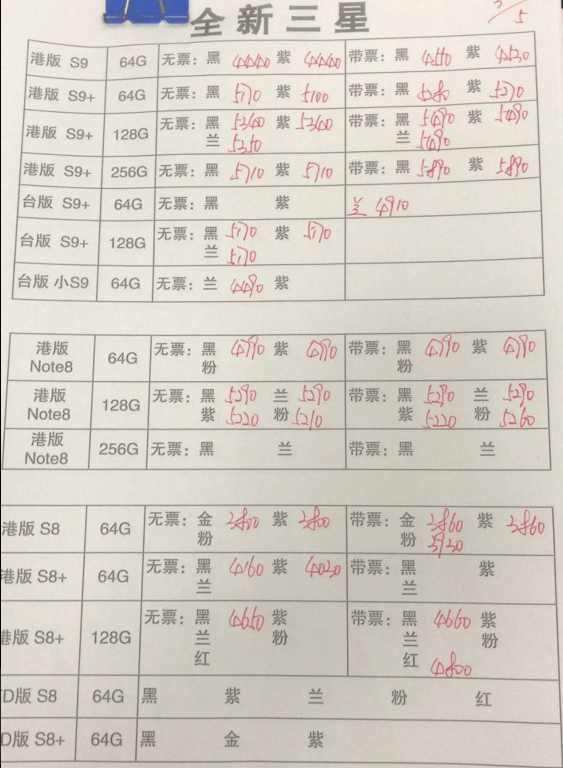 3/5
全新三星
港版 S9 64G 无票：黑 4440 紫 4440 带票：黑 4550 紫 4530
港版 S9+ 64G 无票：黑 5170 紫 5100 带票：黑 5280 紫 5270
港版 S9+ 128G 无票：黑 5360 紫 5360 带票：黑 5490 紫 5490
兰 5350 兰 5490
港版 S9+ 256G 无票：黑 5710 紫 5710 带票：黑 5890 紫 5890
台版 S9+ 64G 无票：黑 紫 兰 4910
台版 S9+ 128G 无票：黑 5170 紫 5170
兰 5170
台版 小S9 64G 无票：兰 4490 紫
港版 Note8 64G 无票：黑 4790 紫 4790 带票：黑 4790 紫 4790
粉 粉
港版 Note8 128G 无票：黑 5290 兰 5290 带票：黑 5290 兰 5290
紫 5220 粉 5210 紫 5220 粉 5260
港版 Note8 256G 无票：黑 兰 带票：黑 兰
港版 S8 64G 无票：金 3800 紫 3800 带票：金 3860 紫 3860
粉 粉 3930
港版 S8+ 64G 无票：黑 4160 紫 4030 带票：黑 紫
兰 兰
港版 S8+ 128G 无票：黑 4660 紫 带票：黑 4660 紫
兰 粉 兰 粉
红 红 4800
D版 S8 64G 黑 紫 兰 粉 红
D版 S8+ 64G 黑 金 紫